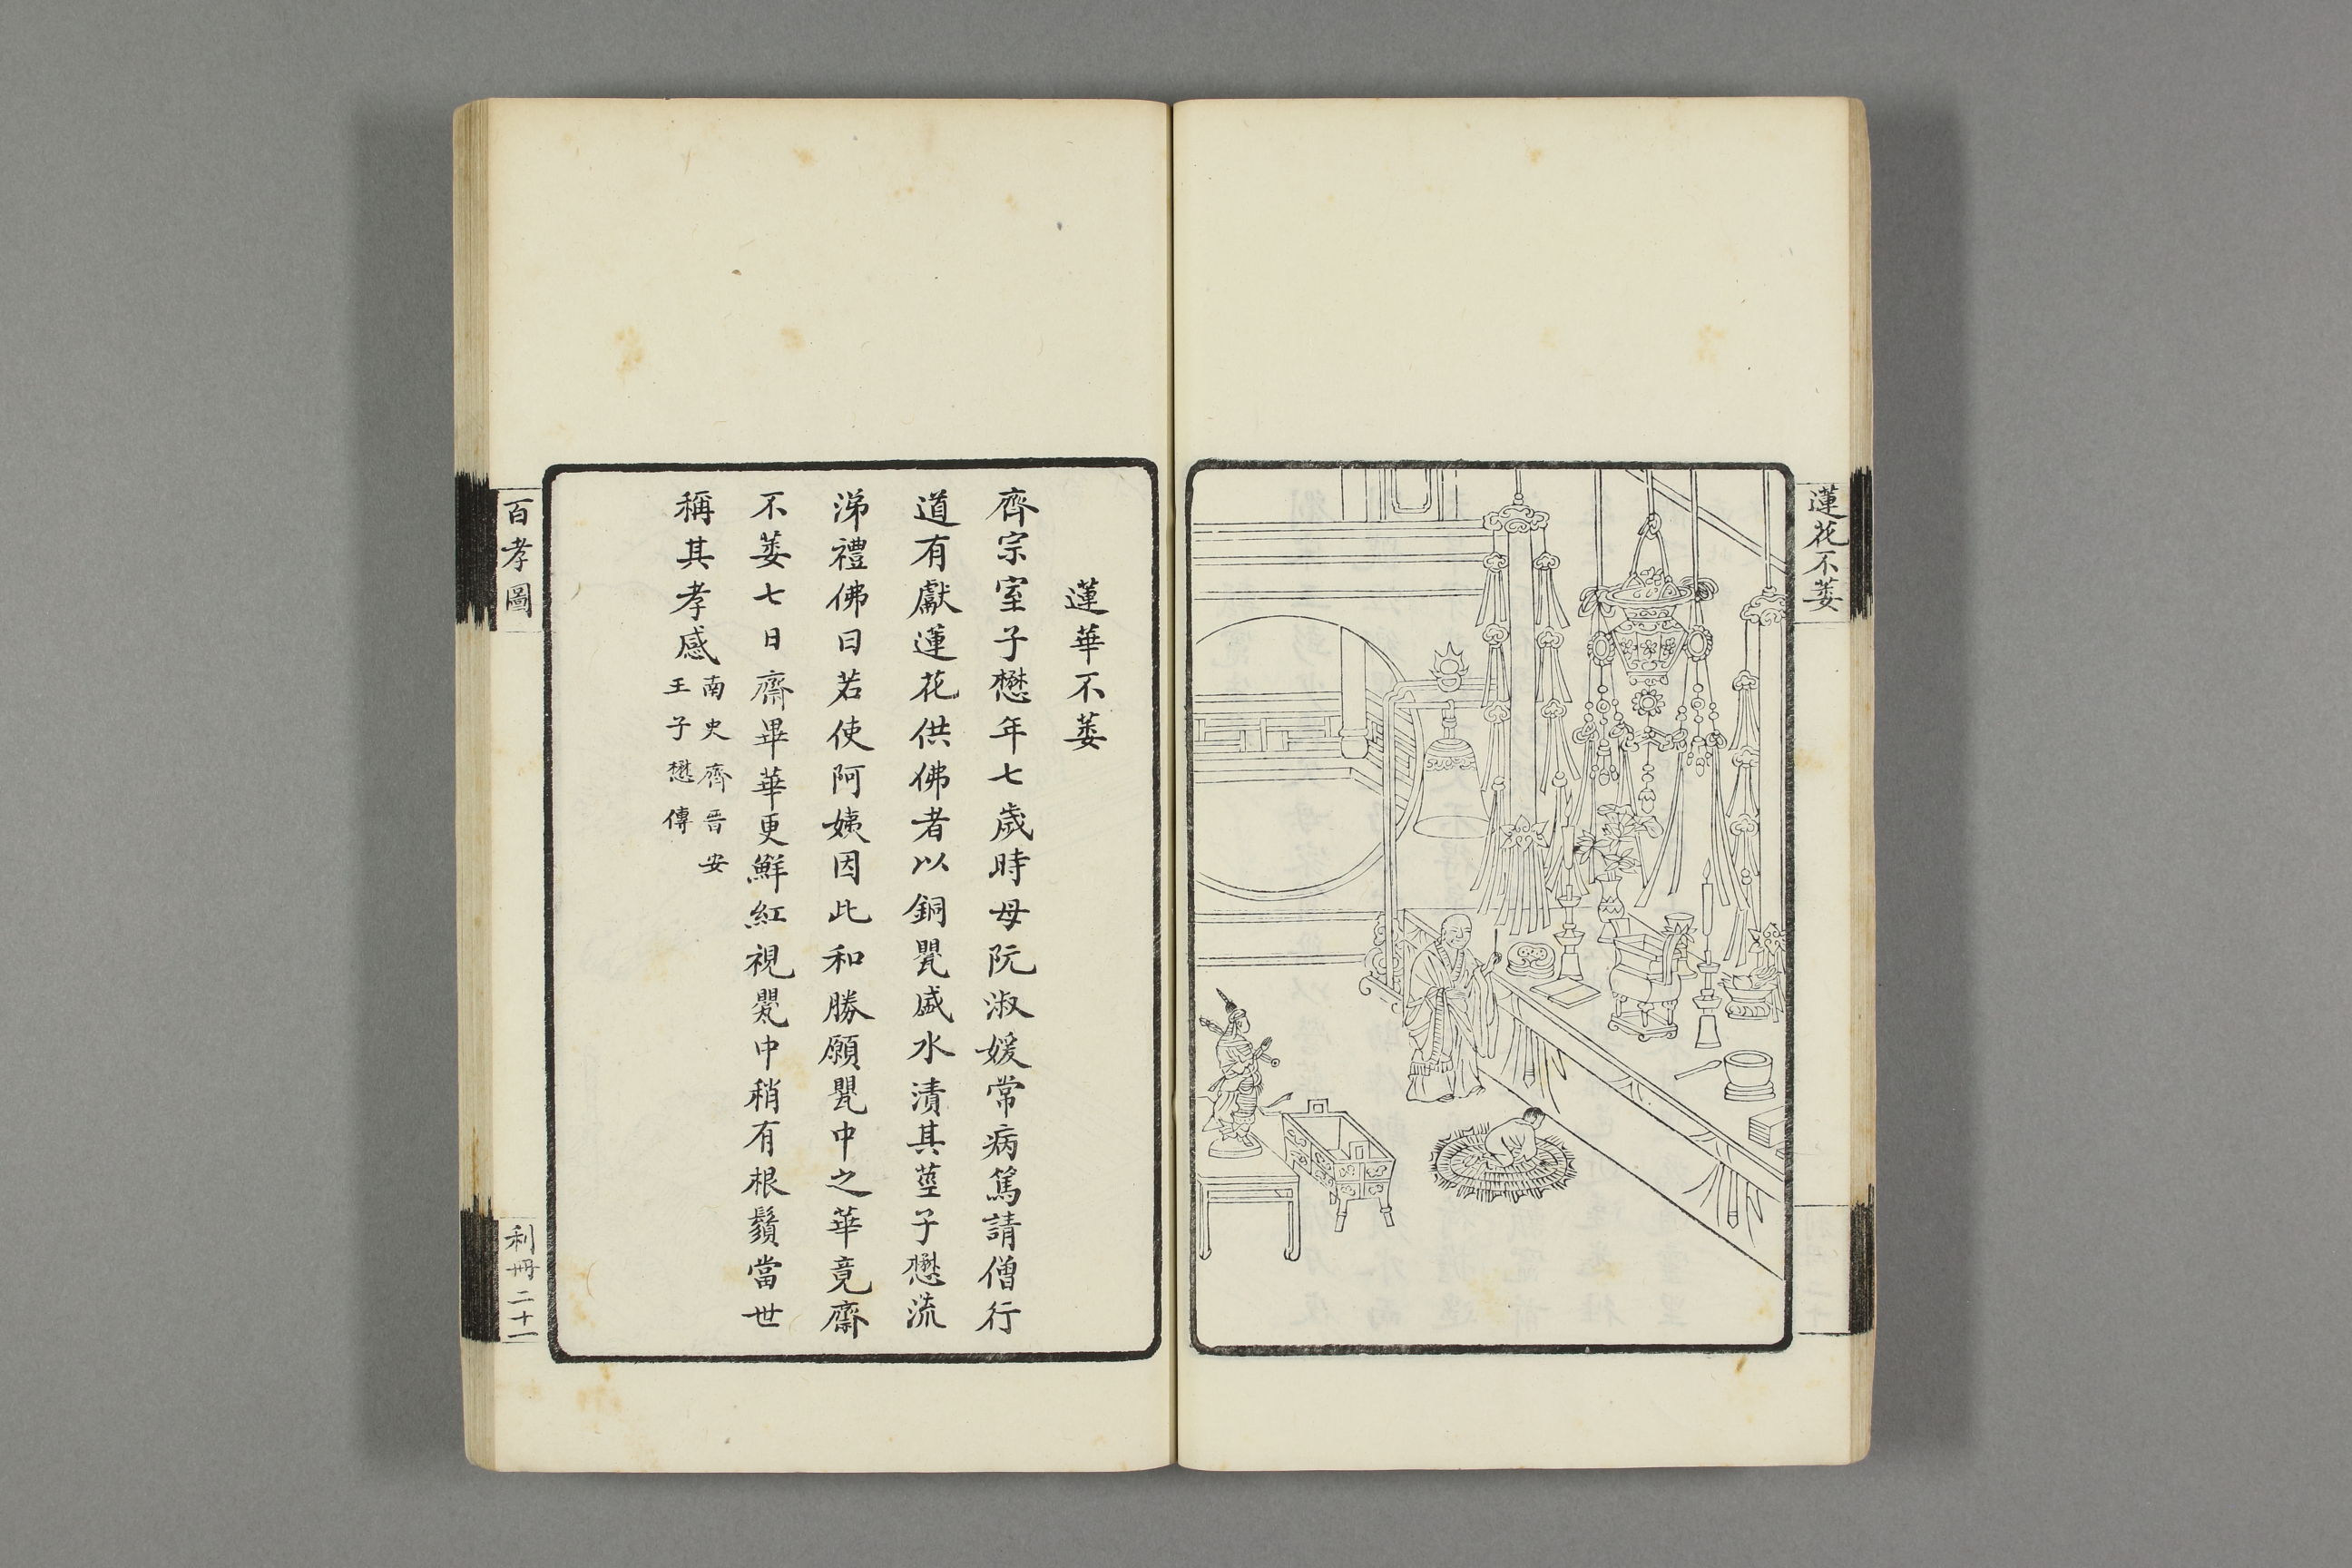 蓮花不萎
蓮華不萎
齊宗室子懋年七歲時母阮淑媛常病篤請僧行
道有獻蓮花供佛者以銅甖盛水漬其莖子懋流
涕禮佛曰若使阿姨因此和勝願甖中之華竟齋
不萎七日齋畢華更鮮紅視甖中稍有根鬚當世
稱其孝感
南史齊晉安
王子懋傳
百孝圖
利冊 二十一